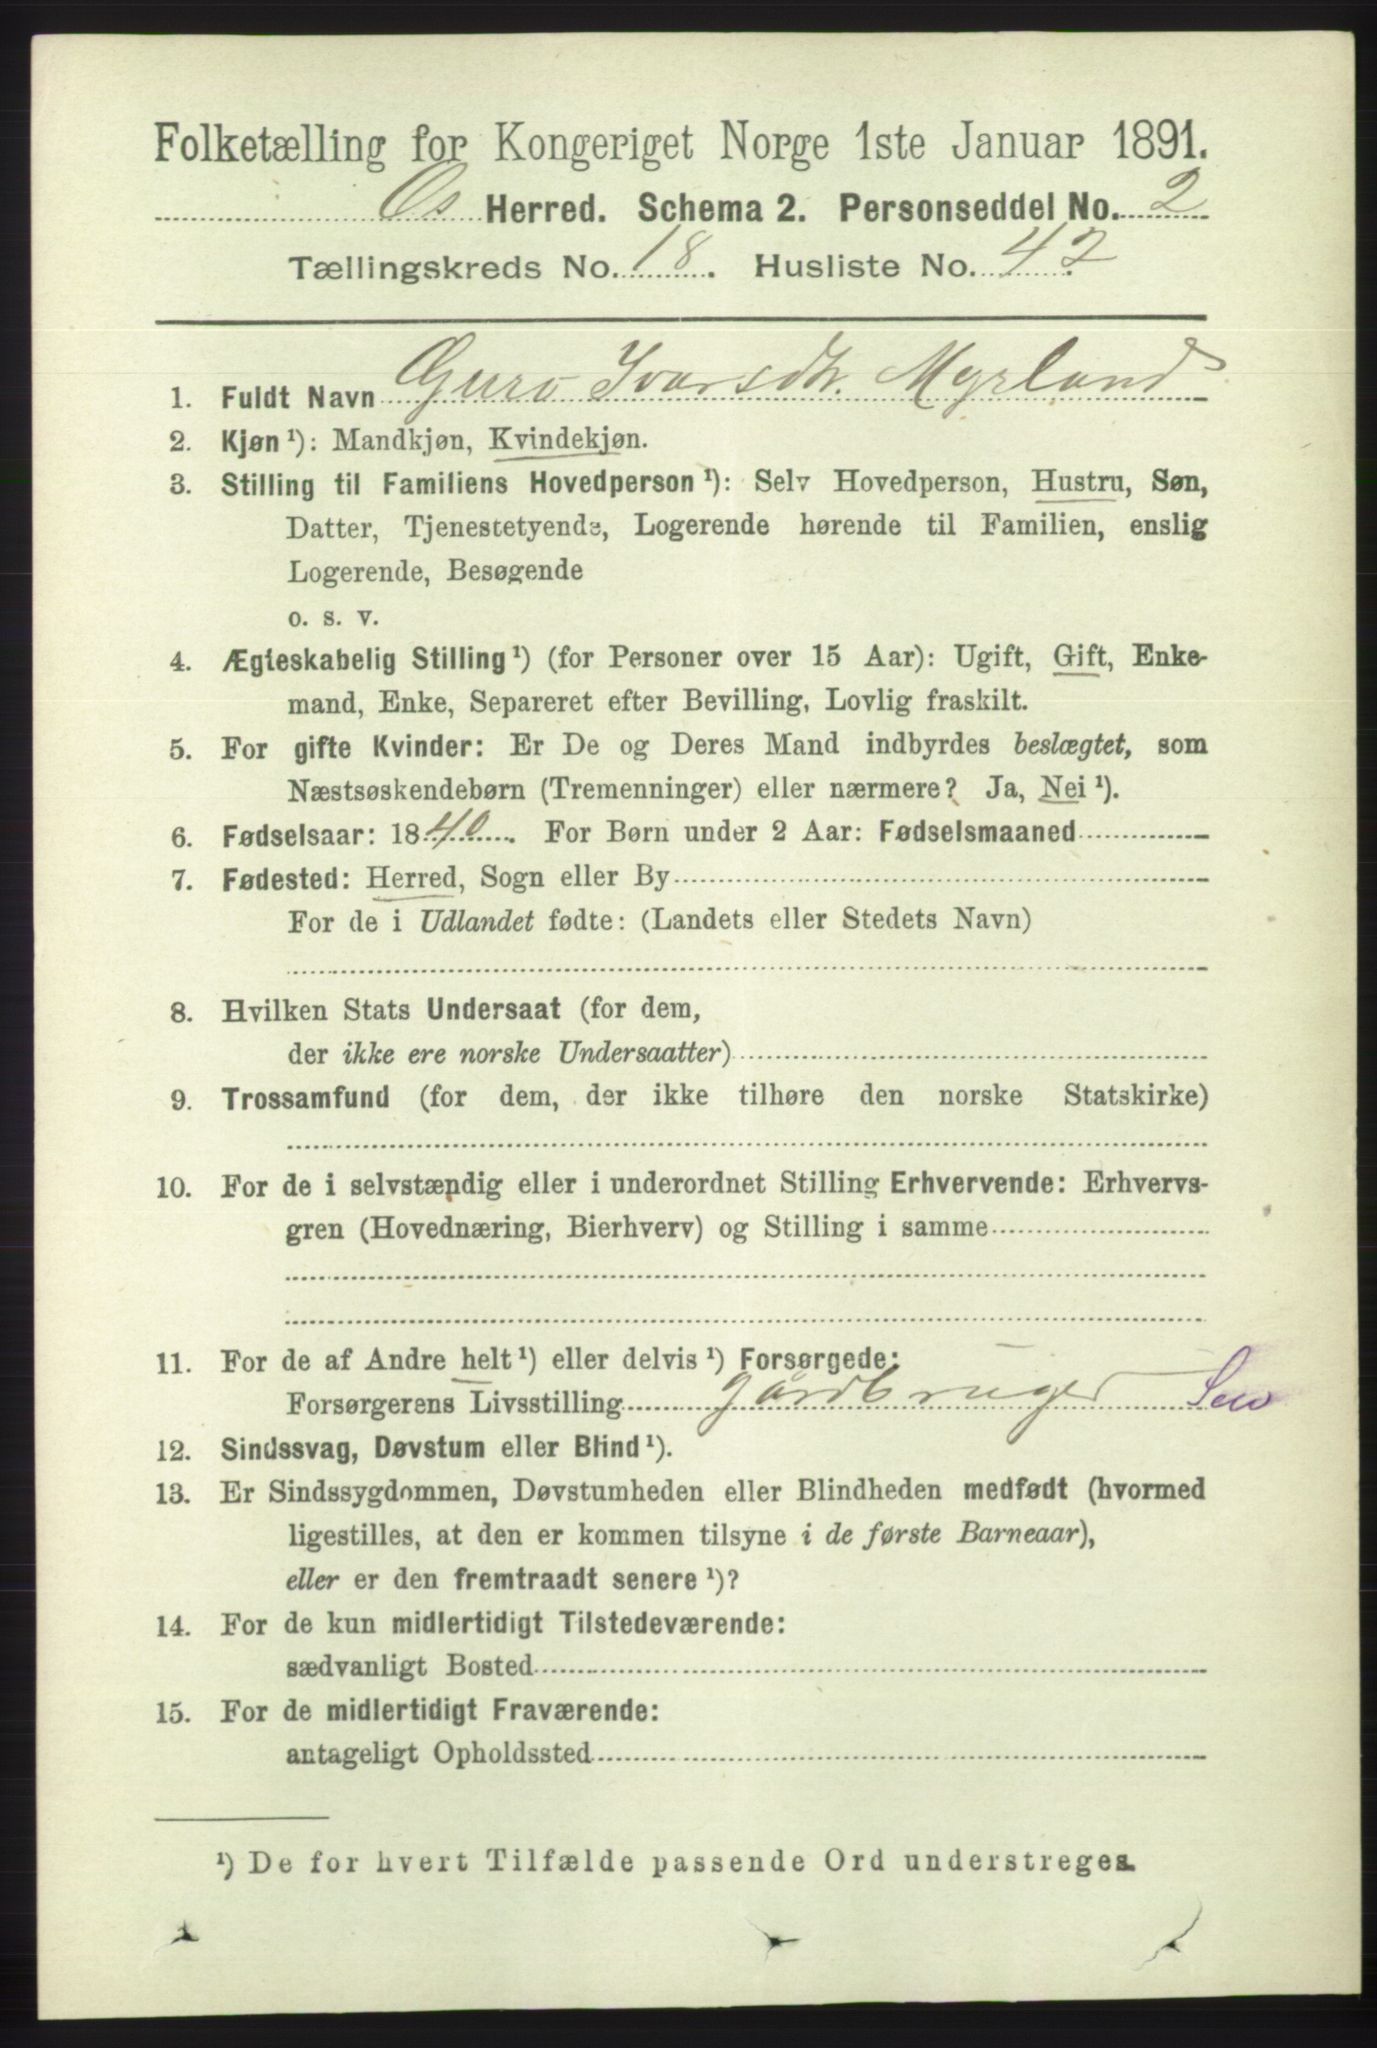 Folketælling for Kongeriget Norge 1ste Januar 1891.
Os Herred. Schema 2. Personseddel No. 2
Tællingskreds No. 18. Husliste No. 42
1. Fuldt Navn Guro Ivarsdtr. Myrland
2. Kjøn¹): Mandkjøn, Kvindekjøn.
3. Stilling til Familiens Hovedperson¹): Selv Hovedperson, Hustru, Søn,
Datter, Tjenestetyende, Logerende hørende til Familien, enslig
Logerende, Besøgende
o. s. v.
4. Ægteskabelig Stilling¹) (for Personer over 15 Aar): Ugift, Gift, Enke-
mand, Enke, Separeret efter Bevilling, Lovlig fraskilt.
5. For gifte Kvinder: Er De og Deres Mand indbyrdes beslægtet, som
Næstsøskendebørn (Tremenninger) eller nærmere? Ja, Nei¹).
6. Fødselsaar: 1840. For Børn under 2 Aar: Fødselsmaaned
7. Fødested: Herred, Sogn eller By
For de i Udlandet fødte: (Landets eller Stedets Navn)
8. Hvilken Stats Undersaat (for dem,
der ikke ere norske Undersaatter)
9. Trossamfund (for dem, der ikke tilhøre den norske Statskirke)
10. For de i selvstændig eller i underordnet Stilling Erhvervende: Erhvervs-
gren (Hovednæring, Bierhverv) og Stilling i samme
11. For de af Andre helt¹) eller delvis¹) Forsørgede:
Forsørgerens Livsstilling gårdbruger
12. Sindssvag, Døvstum eller Blind¹).
13. Er Sindssygdommen, Døvstumheden eller Blindheden medfødt (hvormed
ligestilles, at den er kommen tilsyne i de første Barneaar),
eller er den fremtraadt senere¹)?
14. For de kun midlertidigt Tilstedeværende:
sædvanligt Bosted
15. For de midlertidigt Fraværende:
antageligt Opholdssted
¹) De for hvert Tilfælde passende Ord understreges.